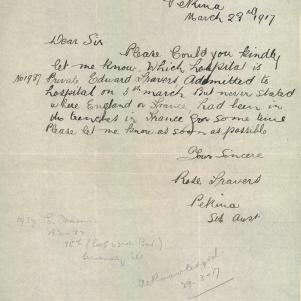 Pekina
March 29th 1917
Dear Sir
Please Could you kindly
let me know Which hospital is
No 1937 Private Edward Travers Admitted to
hospital on 5th march But never stated
where England or France had been in
the trenches in France for some time
Please let me know as soon as possible
Yours Sincere
Rose Travers
Pekina
Sth Aust
1937
Acknowledged
29-3-17